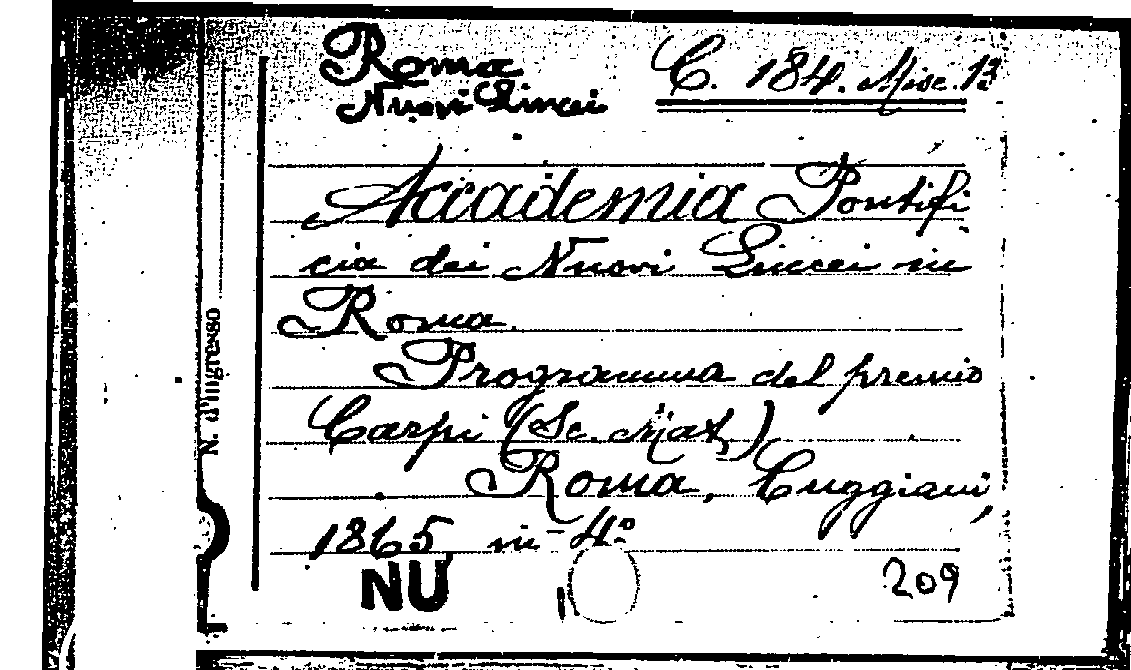 Roma C. 184. Misc. 13
Nuovi Lincei
Accademia Pontifi
cia dei Nuovi Lincei in
Roma.
Programma del premio
Carpi (Sc. Mat.)
Roma, Cuggiani,
1865, in-4°
NU
209
N. d'ingresso